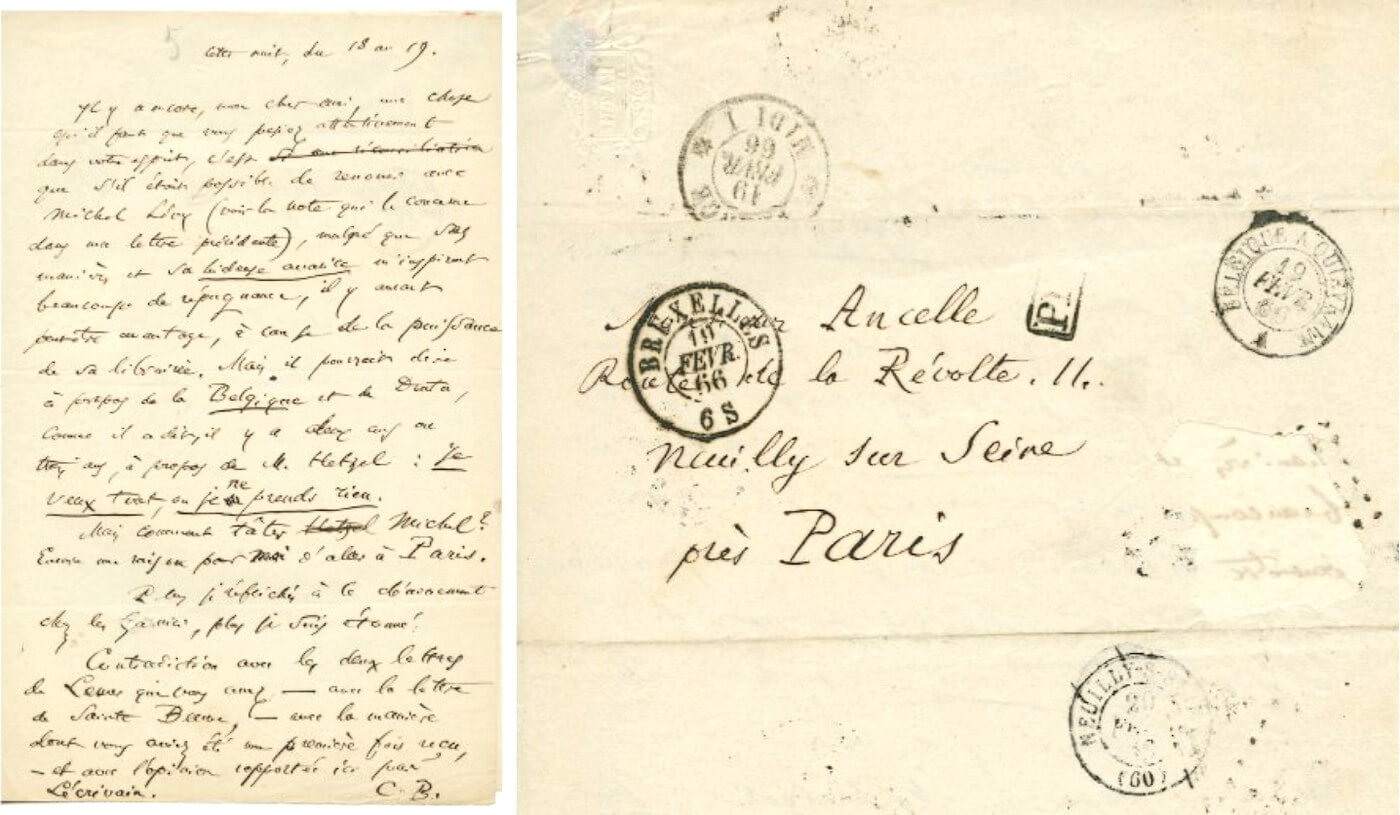 5
Cette nuit, du 18 au 19.
Il y a encore, mon cher ami, une chose
qu'il faut que vous pesiez attentivement
dans votre esprit, c'est si une réconciliation
que s'il était possible de renouer avec
Michel Lévy (voir la note qui le concerne
dans ma lettre précédente), malgré que ses
manières et sa hideuse avarice m'inspirent
beaucoup de répugnance, il y aurait
peutêtre avantage, à cause de la puissance
de sa librairie. Mais il pourrait dire
à propos de la Belgique et de
comme il a dit il y a deux ans ou
trois ans, à propos de M. Hetzel : Je
veux tout, ou je ne prends rien.
Mais comment tâter Hetzel Michel?
Encore une raison pour moi d'aller à Paris.
Plus je réfléchis à le dénouement
chez les Garnier, plus je suis étonné.
Contradiction avec les deux lettres
de que vous avez — avec la lettre
de Sainte Beuve, — avec la manière
dont vous aviez été une première fois reçu,
— et avec l'opinion rapportée ici par
Lécrivain. C. B.
MIDI 1
19
FEVR
66
BRUXELLES
19
FEVR.
66
6 S
BELGIQUE A QUIEVRAIN
19
FEVR
66
P.
Ancelle
Route de la Révolte. 11.
Neuilly sur Seine
près Paris
manières et
beaucoup
peutêtre
NEUILLY-S-
20
(60)